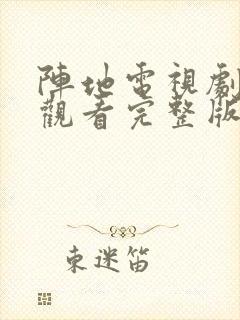 陣地電視劇
觀看完整版
束迷笛